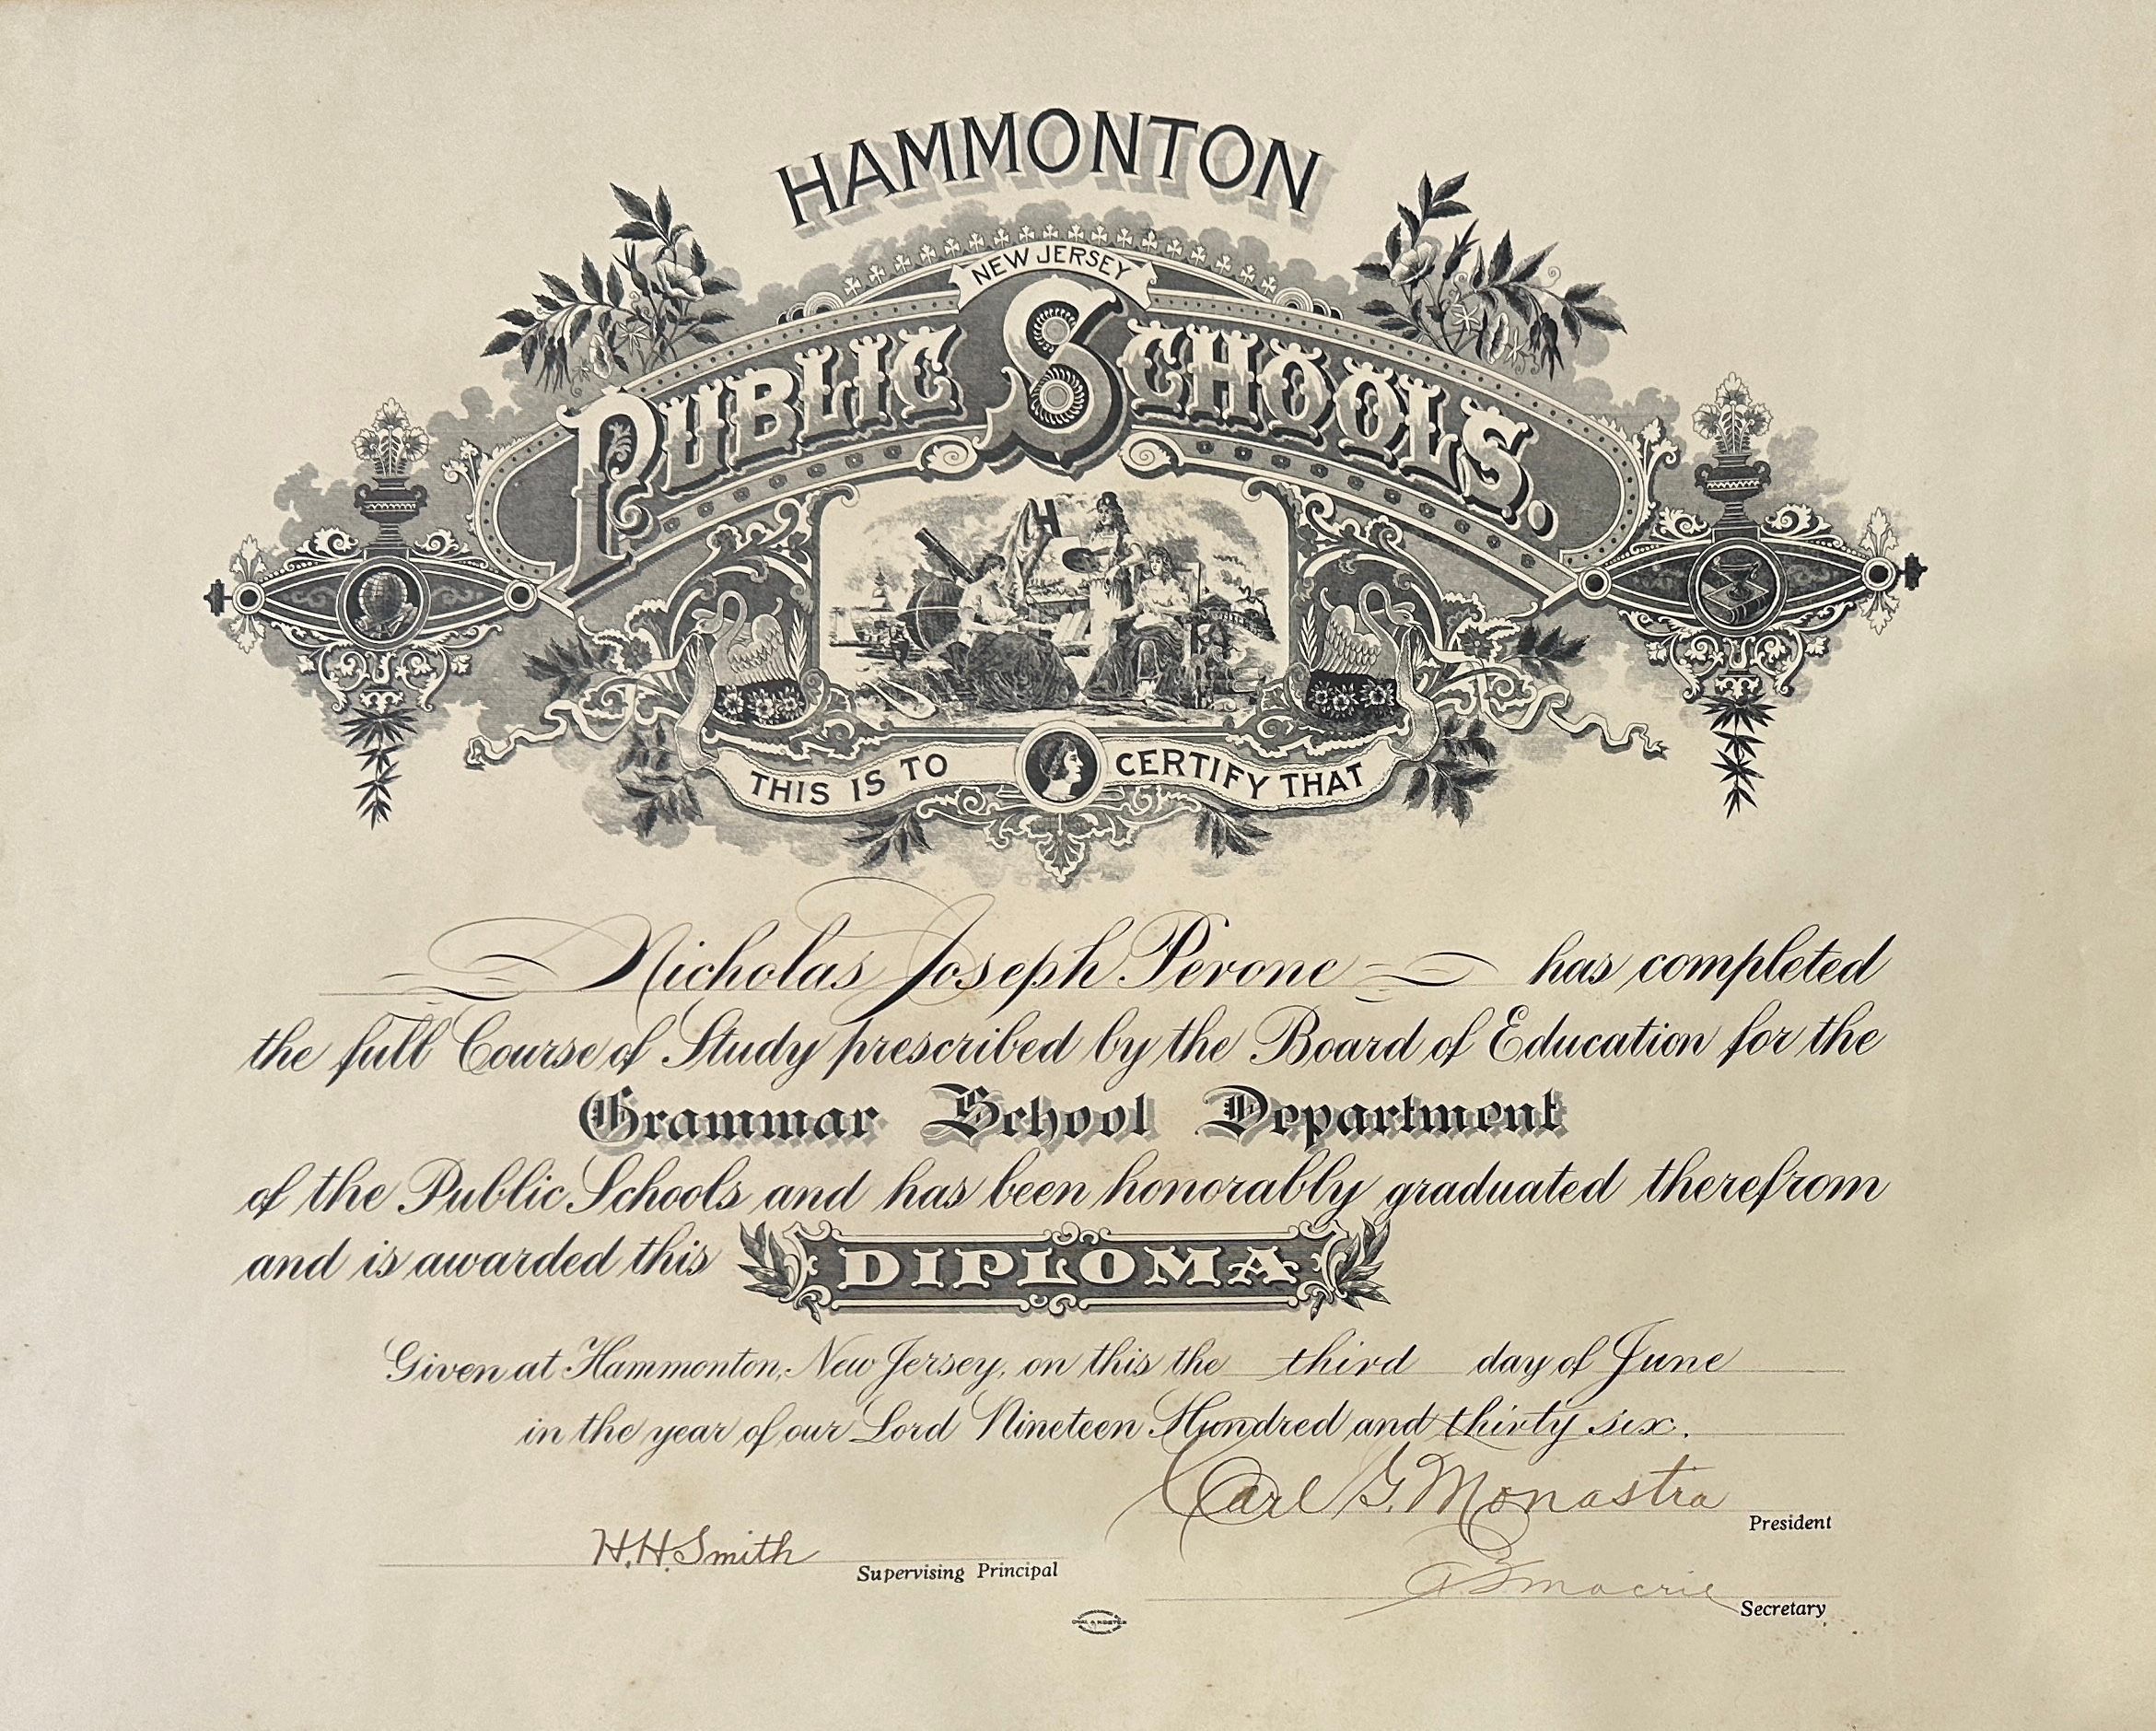 HAMMONTON
NEW JERSEY
PUBLIC SCHOOLS.
H
THIS IS TO CERTIFY THAT
Nicholas Joseph Perone has completed
the full Course of Study prescribed by the Board of Education for the
Grammar School Department
of the Public Schools and has been honorably graduated therefrom
and is awarded this DIPLOMA
Given at Hammonton, New Jersey, on this the third day of June
in the year of our Lord Nineteen Hundred and thirty six.
Carl G. Monastra
President
H.H. Smith
Supervising Principal
Macrie
Secretary